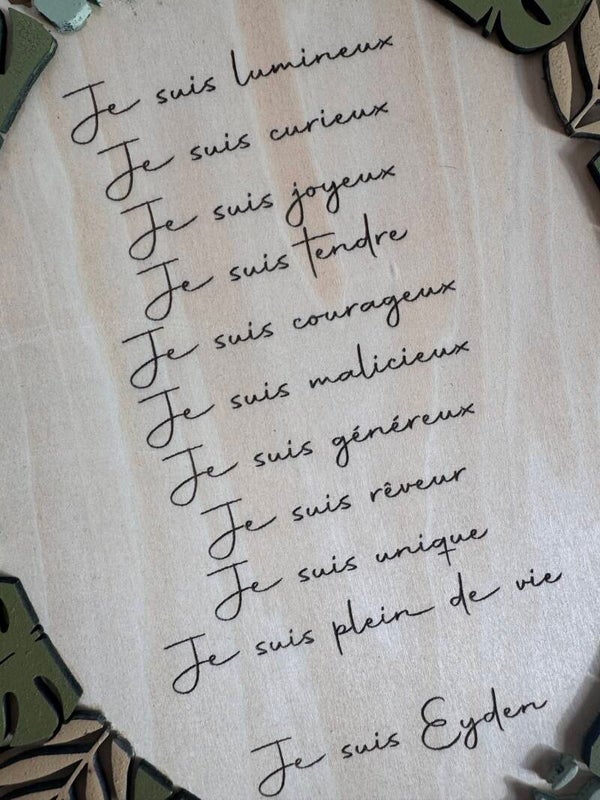 Je suis lumineux
Je suis curieux
Je suis joyeux
Je suis tendre
Je suis courageux
Je suis malicieux
Je suis généreux
Je suis rêveur
Je suis unique
Je suis plein de vie
Je suis Eyden